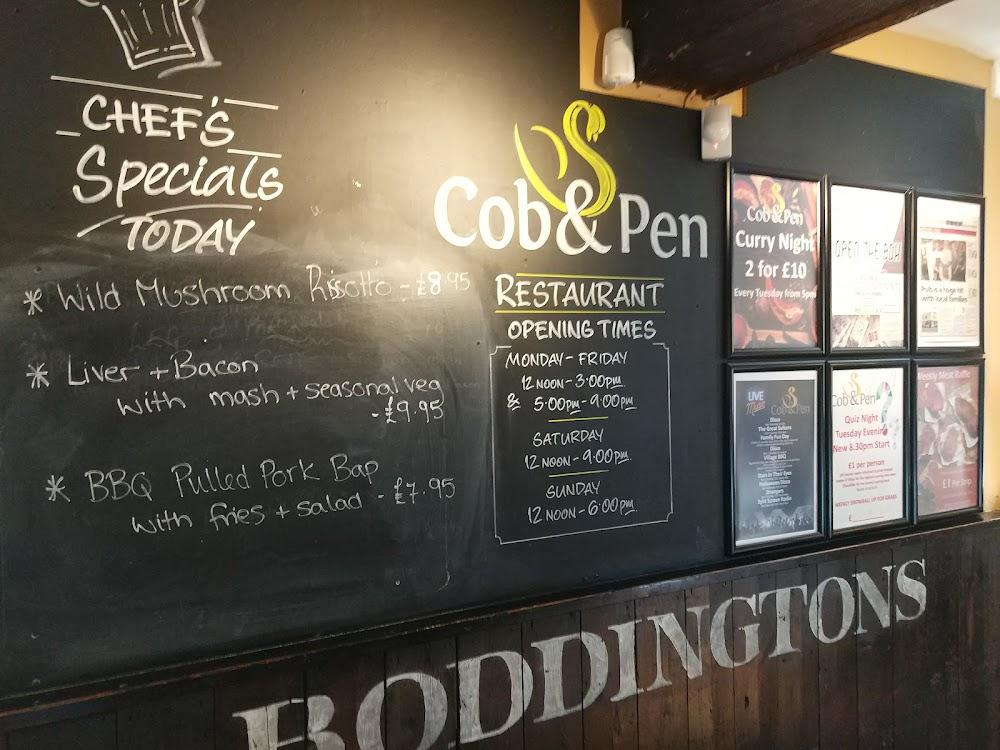 CHEF'S
Specials
TODAY
* Wild Mushroom Risotto - £8.95
* Liver + Bacon
with mash + seasonal veg
- £9.95
* BBQ Pulled Pork Bap
with fries + salad - £7.95
Cob & Pen
RESTAURANT
OPENING TIMES
MONDAY - FRIDAY
12 NOON - 3:00pm
& 5:00pm - 9:00pm
SATURDAY
12 NOON - 9:00pm
SUNDAY
12 NOON - 6:00pm
Cob & Pen
Curry Night
2 for £10
Every Tuesday from 5pm
OPEN THE BOX
Pub is a huge hit
with local families
LIVE
Music
Cob & Pen
Disco
The Great Sultans
Family Fun Day
Disco
Village BBQ
Stars In Their Eyes
Halloween Disco
Strangers
Split Screen Radio
Cob & Pen
Quiz Night
Tuesday Evening
New 8.30pm Start
£1 per person
WEEKLY SNOWBALL UP FOR GRABS
£
Weekly Meat Raffle
£1 Per Strip
BODDINGTONS